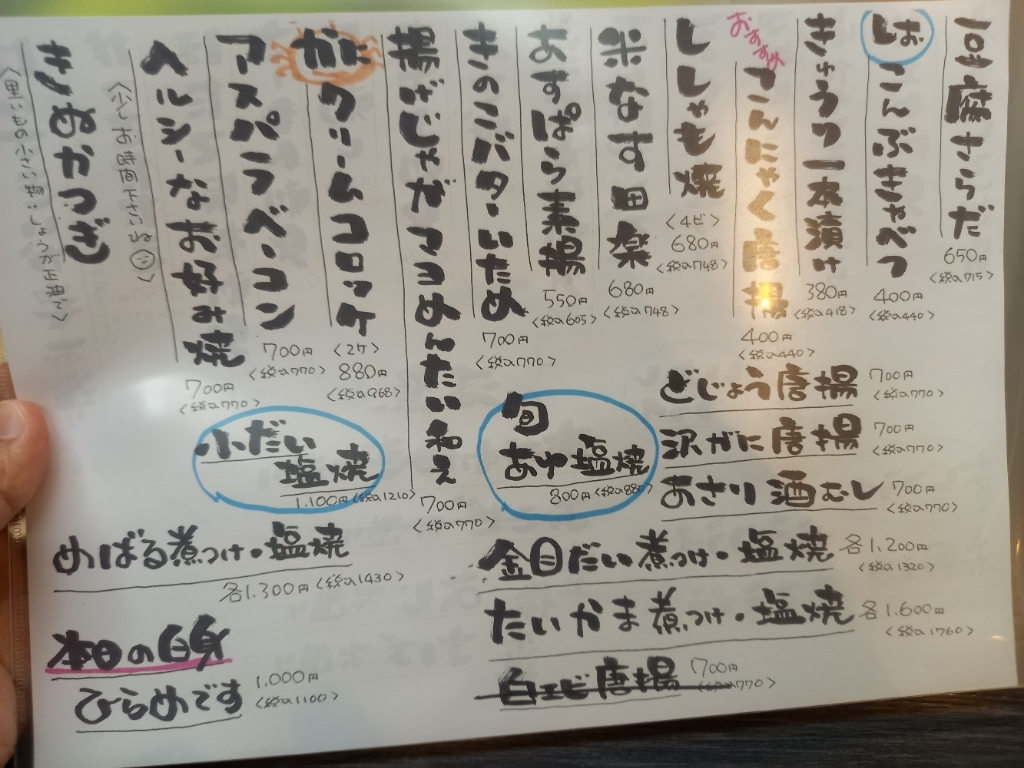 豆腐さらだ
650円
<税込715>
しおこんぶきゃべつ
400円
<税込440>
きゅうり一本漬け
380円
<税込418>
おすすめ
こんにゃく唐揚
400円
<税込440>
ししゃも焼
<4ピ>
680円
<税込748>
米なす田楽
680円
<税込748>
あすぱら素揚
550円
<税込605>
きのこバターいため
700円
<税込770>
揚げじゃがマヨめんたい和え
700円
<税込770>
かにクリームコロッケ
<2ケ>
880円
<税込968>
アスパラベーコン
700円
<税込770>
ヘルシーなお好み焼
700円
<税込770>
<少しお時間下さいね>
きぬかつぎ
<里いもの小さい物・しょうが正油で>
どじょう唐揚 700円
<税込770>
沢がに唐揚 700円
<税込770>
あさり酒むし 700円
<税込770>
旬
あゆ塩焼
800円<税込880>
小だい
塩焼
1,100円<税込1210>
金目だい煮つけ・塩焼 各1.200円
<税込1320>
たいかま煮つけ・塩焼 各1.600円
<税込1760>
白エビ唐揚 700円
<税込770>
めばる煮つけ・塩焼
各1.300円<税込1430>
本日の白身
ひらめです 1.000円
<税込1100>